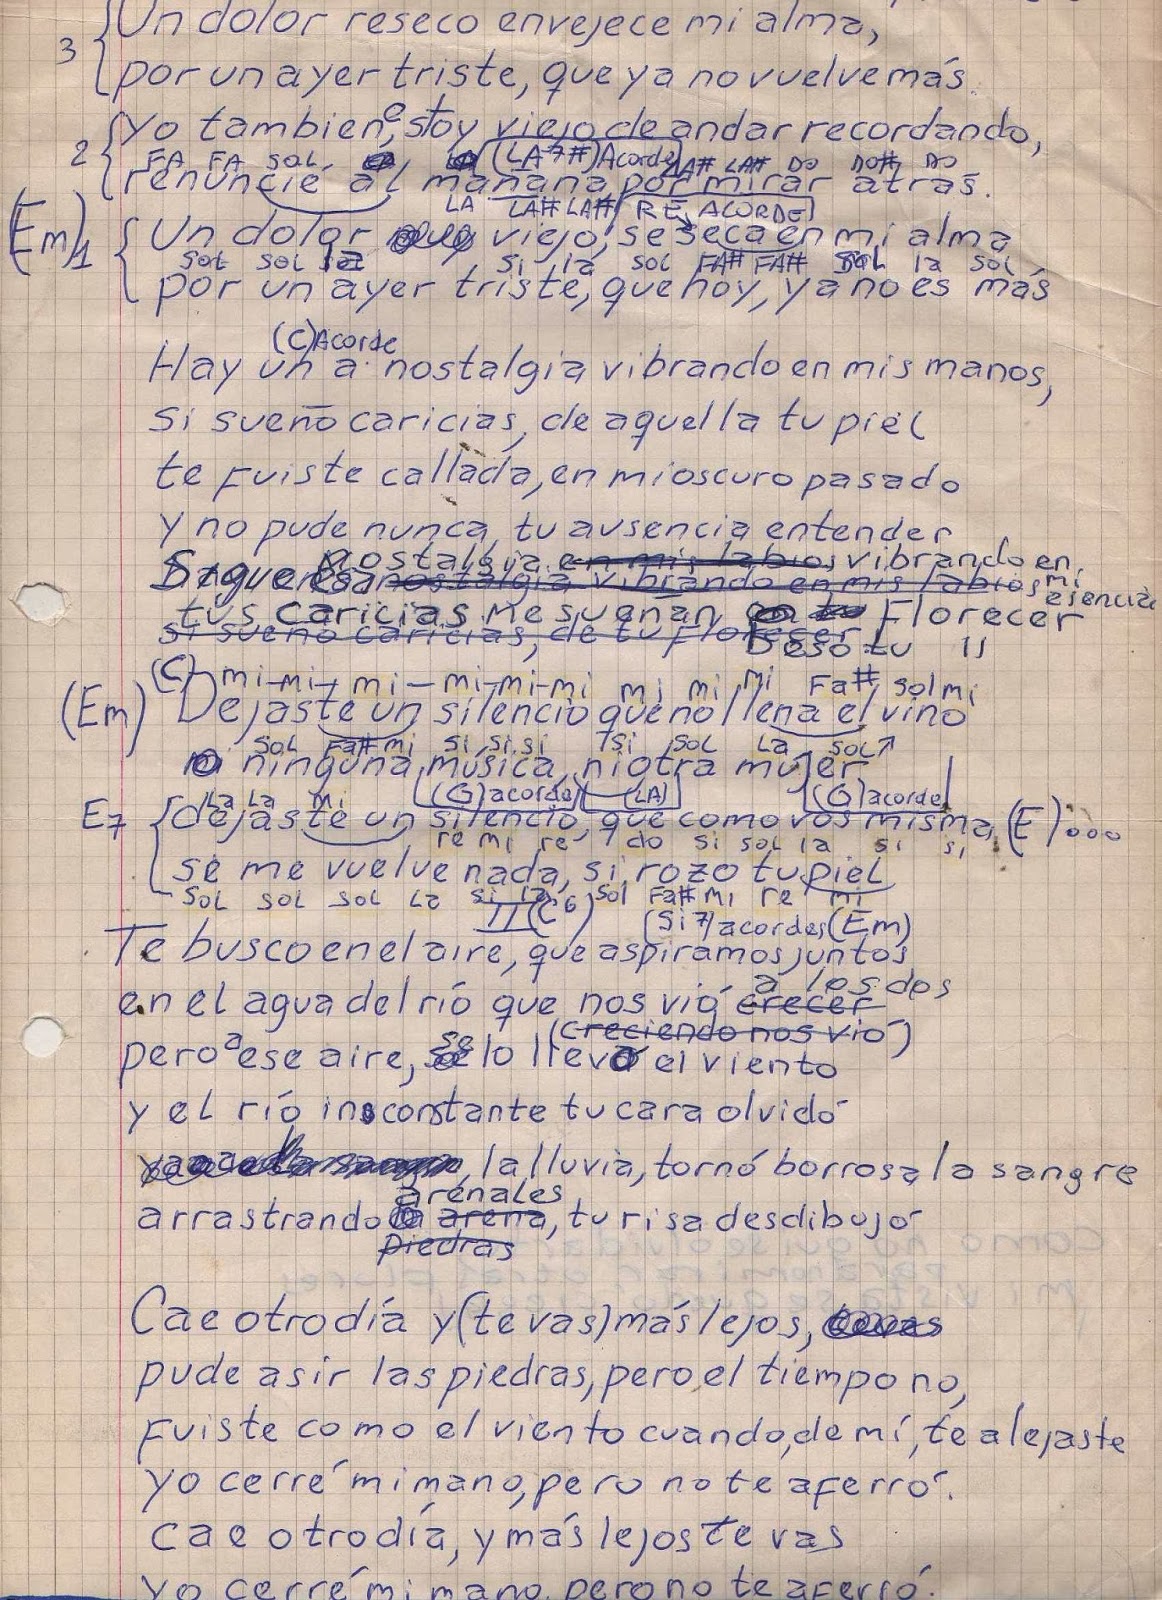 3 Un dolor reseco envejece mi alma,
por un ayer triste, que ya no vuelve más.
2 Yo tambien, estoy viejo de andar recordando,
FA FA SOL LA (LA7#) Acorde LA# LA# DO DO# DO
renuncié al mañana por mirar atrás.
LA LA# LA# RE ACORDE
(Em) 1 Un dolor viejo, se seca en mi alma
SOL SOL la si la SOL FA# FA# SOL la SOL
por un ayer triste, que hoy, ya no es más
(C) Acorde
Hay un a nostalgia vibrando en mis manos,
si sueño caricias, de aquella tu piel
te fuiste callada, en mi oscuro pasado
y no pude nunca, tu ausencia entender
nostalgia en mis labios vibrando en
Sigue esa nostalgia vibrando en mis labios mi esencia
tus caricias me suenan Florecer
si sueño caricias, de tu florecer
Deso tu 11
(C) mi-mi-mi-mi-mi-mi mi mi mi Fa# sol mi
(Em) Dejaste un silencio que no llena el vino
SOL Fa# mi si si si si SOL LA SOL
ni ninguna música, ni otra mujer
(G) acorde (LA) (G) acorde
La La mi
E7 dejaste un silencio, que como vos misma, (E) ...
re mi re do si sol la si si
se me vuelve nada, si rozo tu piel
SOL SOL SOL La si la SOL Fa# mi re mi
II (C6) (Si7) acordes (Em)
Te busco en el aire, que aspiramos juntos
a los dos
en el agua del río que nos vió crecer
(creciendo nos vió)
pero a ese aire, se lo llevó el viento
y el río inconstante tu cara olvidó
, la lluvia, tornó borrosa, la sangre
arenales
arrastrando la arena, tu risa desdibujó
piedras
Cae otro día y (te vas) más lejos, te vas
pude asir las piedras, pero el tiempo no,
Fuiste como el viento cuando, de mí, te alejaste
yo cerré mi mano, pero no te aferró.
cae otro día, y más lejos te vas
yo cerré mi mano, pero no te aferró.